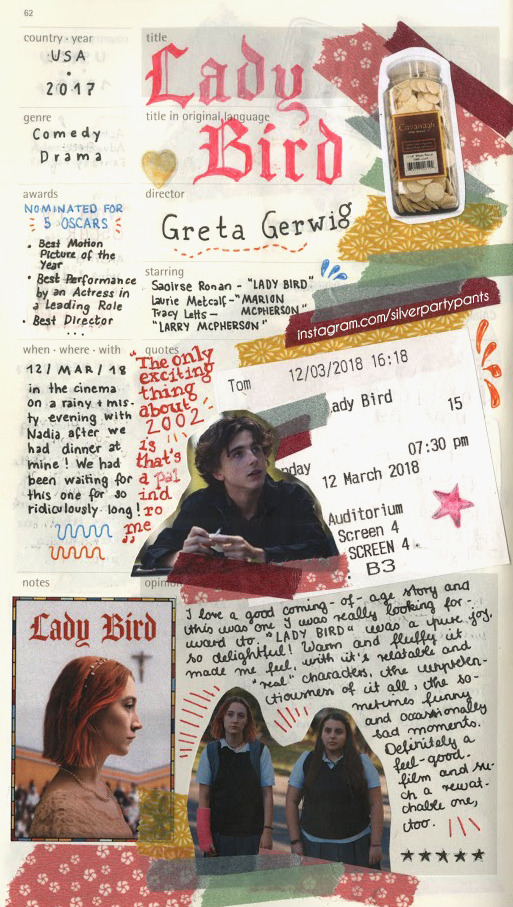 62
country · year
USA
2017
title
Lady
title in original language
Bird
genre
Comedy
Drama
awards
NOMINATED FOR
5 OSCARS
• Best Motion
Picture of the
Year
• Best Performance
by an Actress in
a Leading Role
• Best Director
...
director
Greta Gerwig
starring
Saoirse Ronan - "LADY BIRD"
Laurie Metcalf - "MARION
MCPHERSON"
Tracy Letts -
"LARRY MCPHERSON"
Cavanagh
instagram.com/silverpartypants
when · where · with
12/MAR/18
in the cinema
on a rainy + mis-
ty evening with
Nadia after we
had dinner at
mine! We had
been waiting for
this one for so
ridiculously long!
quotes
"The only
exciting
thing
about
2002
is
that's
a pal
ind
ro
me"
Tom
12/03/2018 16:18
ady Bird
15
07:30 pm
nday
12 March 2018
Auditorium
Screen 4
SCREEN 4
B3
notes
Lady Bird
opinion
I love a good coming-of-age story and
this was one I was really looking for-
ward to. "LADY BIRD" was a pure joy,
so delightful! Warm and fluffy it
made me feel, with it's relatable and
"real" characters, the unpreten-
tiousness of it all, the so-
metimes funny
and occasionally
sad moments.
Definitely a
feel-good-
film and su-
ch a rewat-
chable one,
too.
★★★★★